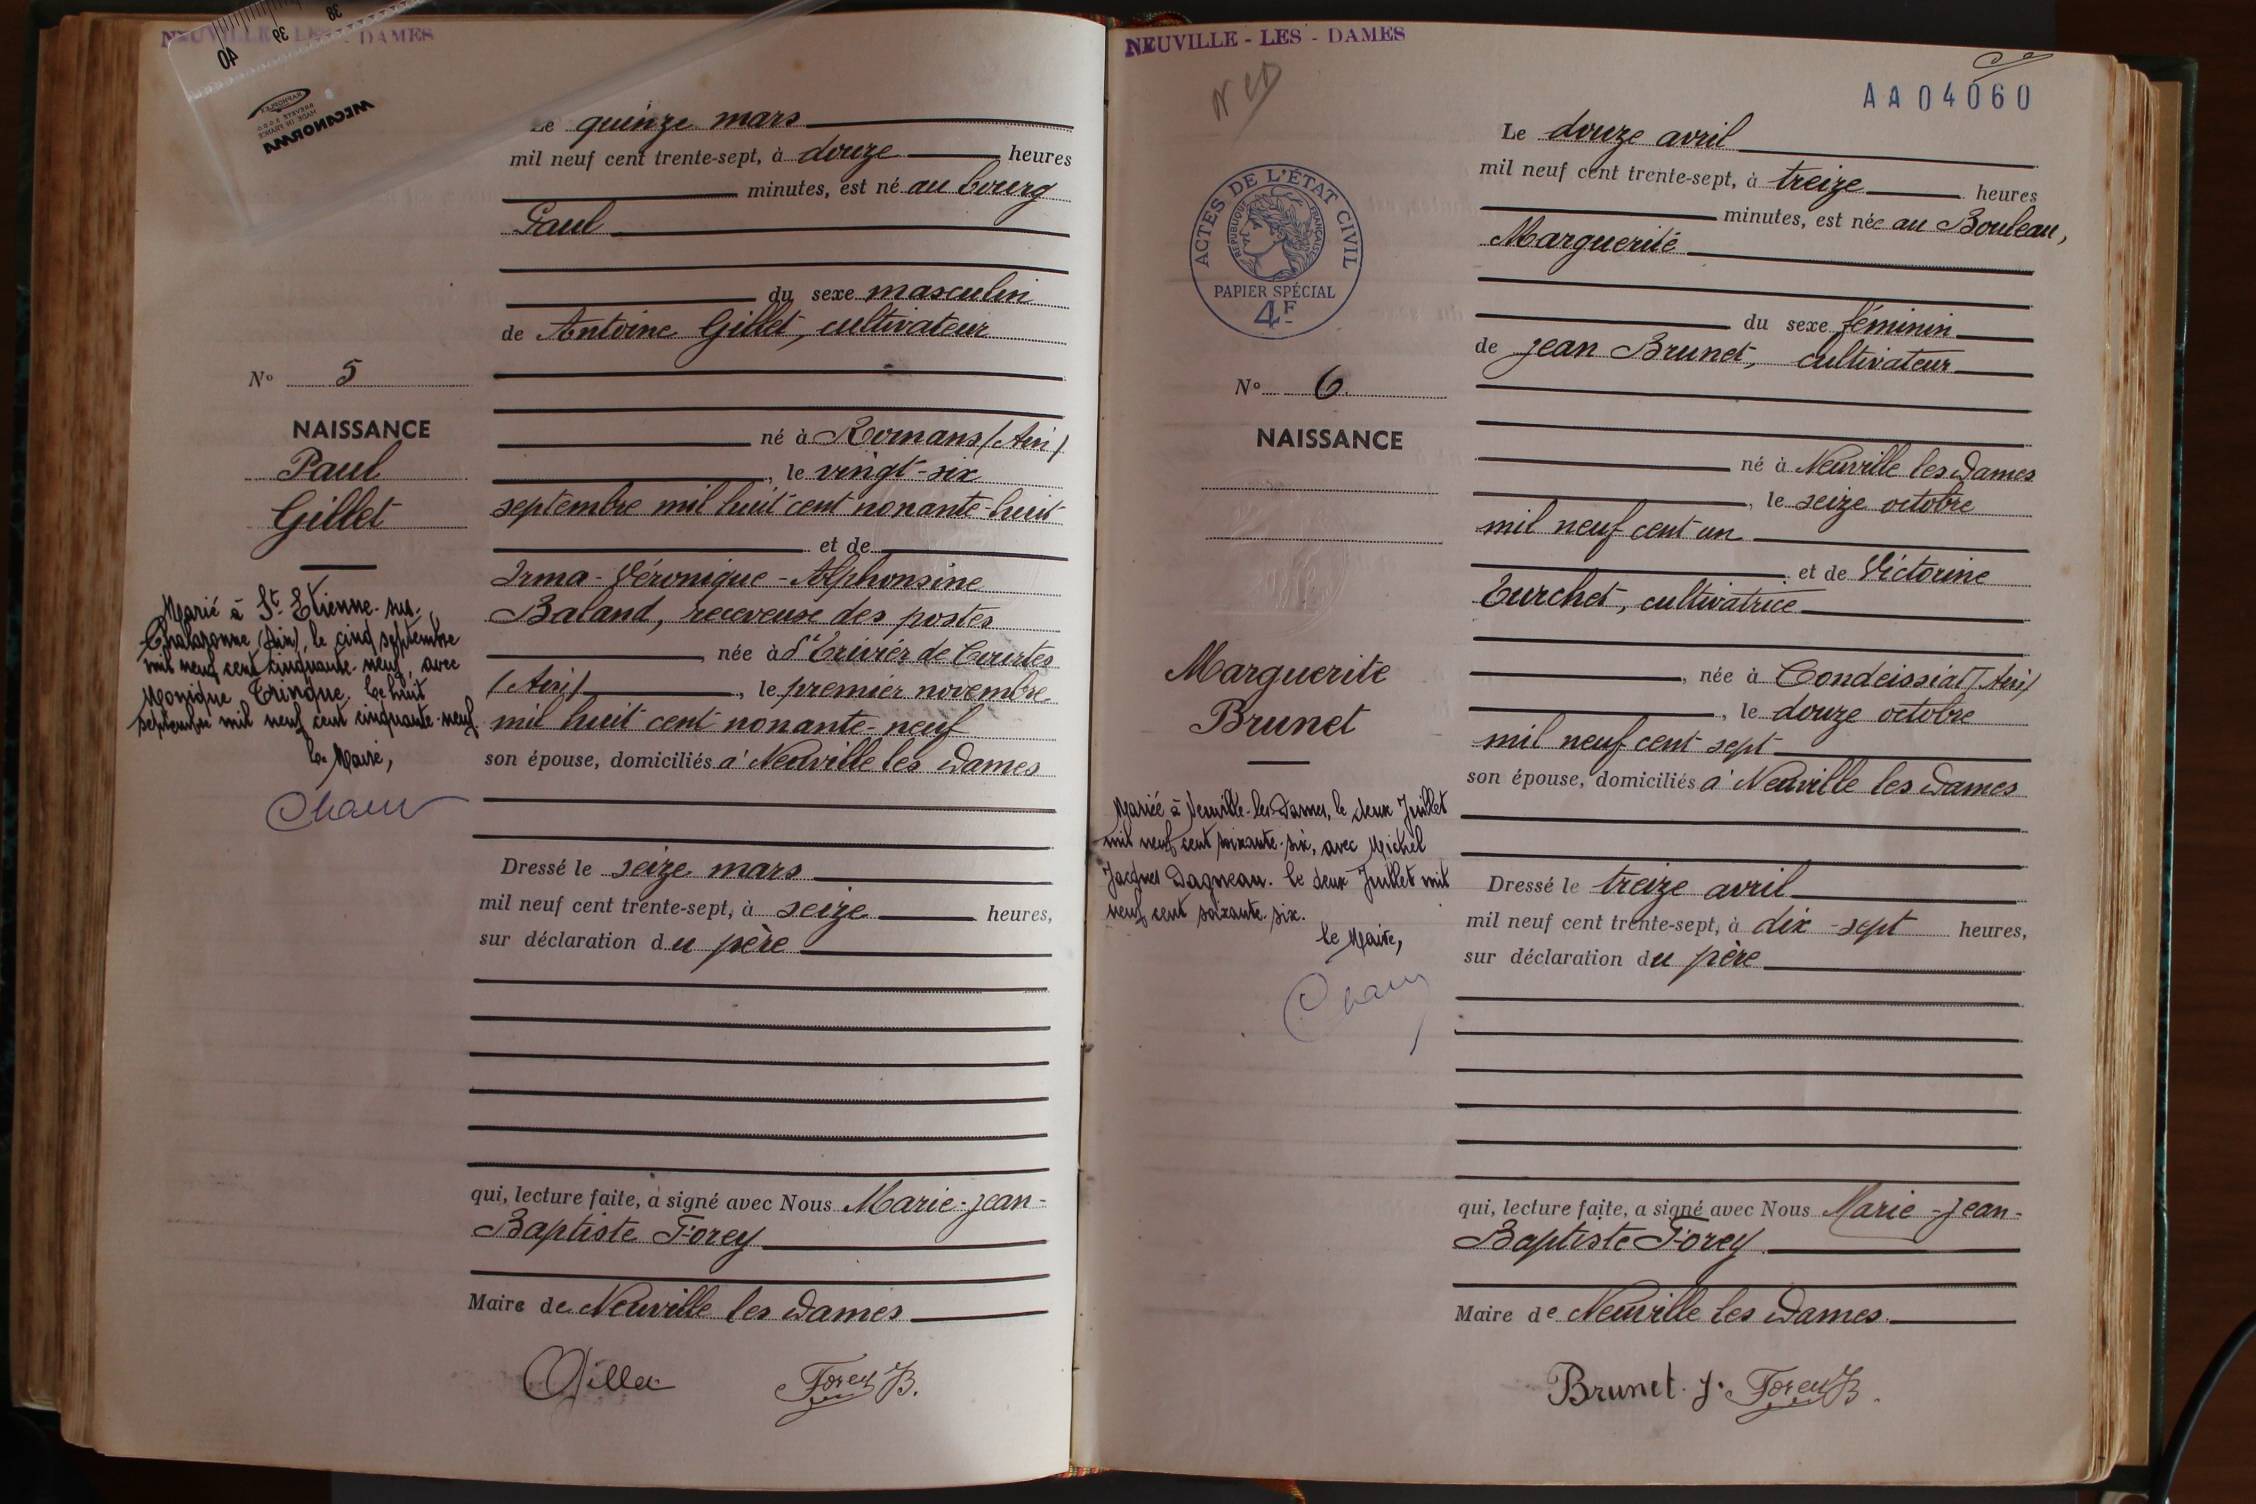 NEUVILLE - LES - DAMES
40
39
38
MECANORMA
Le quinze mars
mil neuf cent trente-sept, à douze heures
minutes, est né au bourg
Paul
du sexe masculin
de Antoine Gillet, cultivateur
né à Romans (Ain)
, le vingt-six
septembre mil huit cent nonante-huit
et de
Irma - Véronique - Alphonsine
Baland, receveuse des postes
, née à St Trivier de Courtes
(Ain), le premier novembre
mil huit cent nonante-neuf
son épouse, domiciliés à Neuville les Dames
Dressé le seize mars
mil neuf cent trente-sept, à seize heures,
sur déclaration du père
qui, lecture faite, a signé avec Nous Marie-Jean-
Baptiste Forey
Maire de Neuville les Dames
Forey B.
No 5
NAISSANCE
Paul
Gillet
Marié à St Etienne-sur-
Chalaronne (Ain), le cinq septembre
mil neuf cent cinquante-neuf, avec
Monique Trinque. Le huit
septembre mil neuf cent cinquante-neuf
Le Maire,
NEUVILLE - LES - DAMES
AA04060
ACTES DE L'ÉTAT CIVIL
RÉPUBLIQUE FRANÇAISE
PAPIER SPÉCIAL
4F
No 6.
NAISSANCE
Marguerite
Brunet
Mariée à Neuville-les-Dames, le deux Juillet
mil neuf cent soixante-six, avec Michel
Jacques Dagneau. Le deux Juillet mil
neuf cent soixante-six.
le Maire,
Le douze avril
mil neuf cent trente-sept, à treize heures
minutes, est née au Bouleau,
Marguerite
du sexe féminin
de Jean Brunet, cultivateur
né à Neuville les Dames
, le seize octobre
mil neuf cent un
et de Victorine
Turchet, cultivatrice
, née à Condeissiat (Ain)
, le douze octobre
mil neuf cent sept
son épouse, domiciliés à Neuville les Dames
Dressé le treize avril
mil neuf cent trente-sept, à dix-sept heures,
sur déclaration du père
qui, lecture faite, a signé avec Nous Marie-Jean-
Baptiste Forey
Maire de Neuville les Dames.
Brunet. J. Forey B.